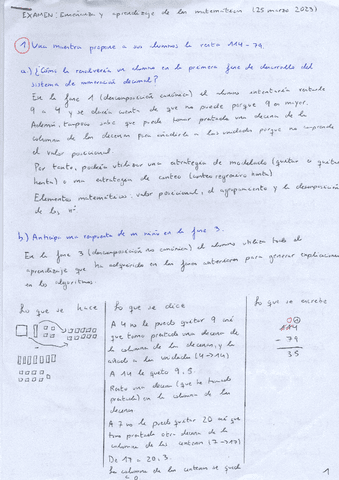 EXAMEN: Enseñanza y aprendizaje de las matemáticas (25 marzo 2023)
1 Una maestra propone a sus alumnos la resta 114 - 79.
a) ¿Cómo la resolvería un alumno en la primera fase de desarrollo del
sistema de numeración decimal?
En la fase 1 (descomposición canónica) el alumno intentará restarle
9 a 4 y se dará cuenta de que no puede porque 9 es mayor.
Además, tampoco sabe que puede tomar prestada una decena de la
columna de las decenas para añadirla a las unidades porque no comprende
el valor posicional.
Por tanto, podría utilizar una estrategia de modelado (quitar o quitar
hasta) o una estrategia de conteo (contar regresivo hasta)
Elementos matemáticos: valor posicional, el agrupamiento y la descomposición
de los nº
b) Anticipa una respuesta de un niño en la fase 3.
En la fase 3 (descomposición no canónica) el alumno utiliza todo el
aprendizaje que ha adquirido en las fases anteriores para generar explicaciones
en los algoritmos.
Lo que se hace
Lo que se dice
A 4 no le puedo quitar 9 así
que tomo prestada una decena de
la columna de las decenas, y la
añado a las unidades (4→14)
A 14 le quito 9. 5.
Resto una decena (que he tomado
prestada) en la columna de las
decenas
A 7 no le puedo quitar 20 así que
tomo prestado otra decena de la
columna de las centenas (7→17)
De 17 a 20. 3.
La columna de las centenas se queda
a 0.
Lo que se escribe
114
- 79
35
1